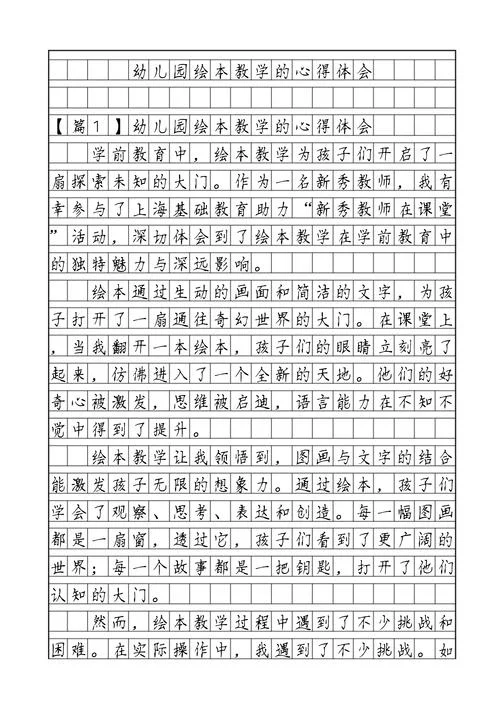 幼儿园绘本教学的心得体会
【篇1】幼儿园绘本教学的心得体会
学前教育中，绘本教学为孩子们开启了一
扇探索未知的大门。作为一名新秀教师，我有
幸参与了上海基础教育助力“新秀教师在课堂
”活动，深切体会到了绘本教学在学前教育中
的独特魅力与深远影响。
绘本通过生动的画面和简洁的文字，为孩
子打开了一扇通往奇幻世界的大门。在课堂上
，当我翻开一本绘本，孩子们的眼睛立刻亮了
起来，仿佛进入了一个全新的天地。他们的好
奇心被激发，思维被启迪，语言能力在不知不
觉中得到了提升。
绘本教学让我领悟到，图画与文字的结合
能激发孩子无限的想象力。通过绘本，孩子们
学会了观察、思考、表达和创造。每一幅图画
都是一扇窗，透过它，孩子们看到了更广阔的
世界；每一个故事都是一把钥匙，打开了他们
认知的大门。
然而，绘本教学过程中遇到了不少挑战和
困难。在实际操作中，我遇到了不少挑战。如